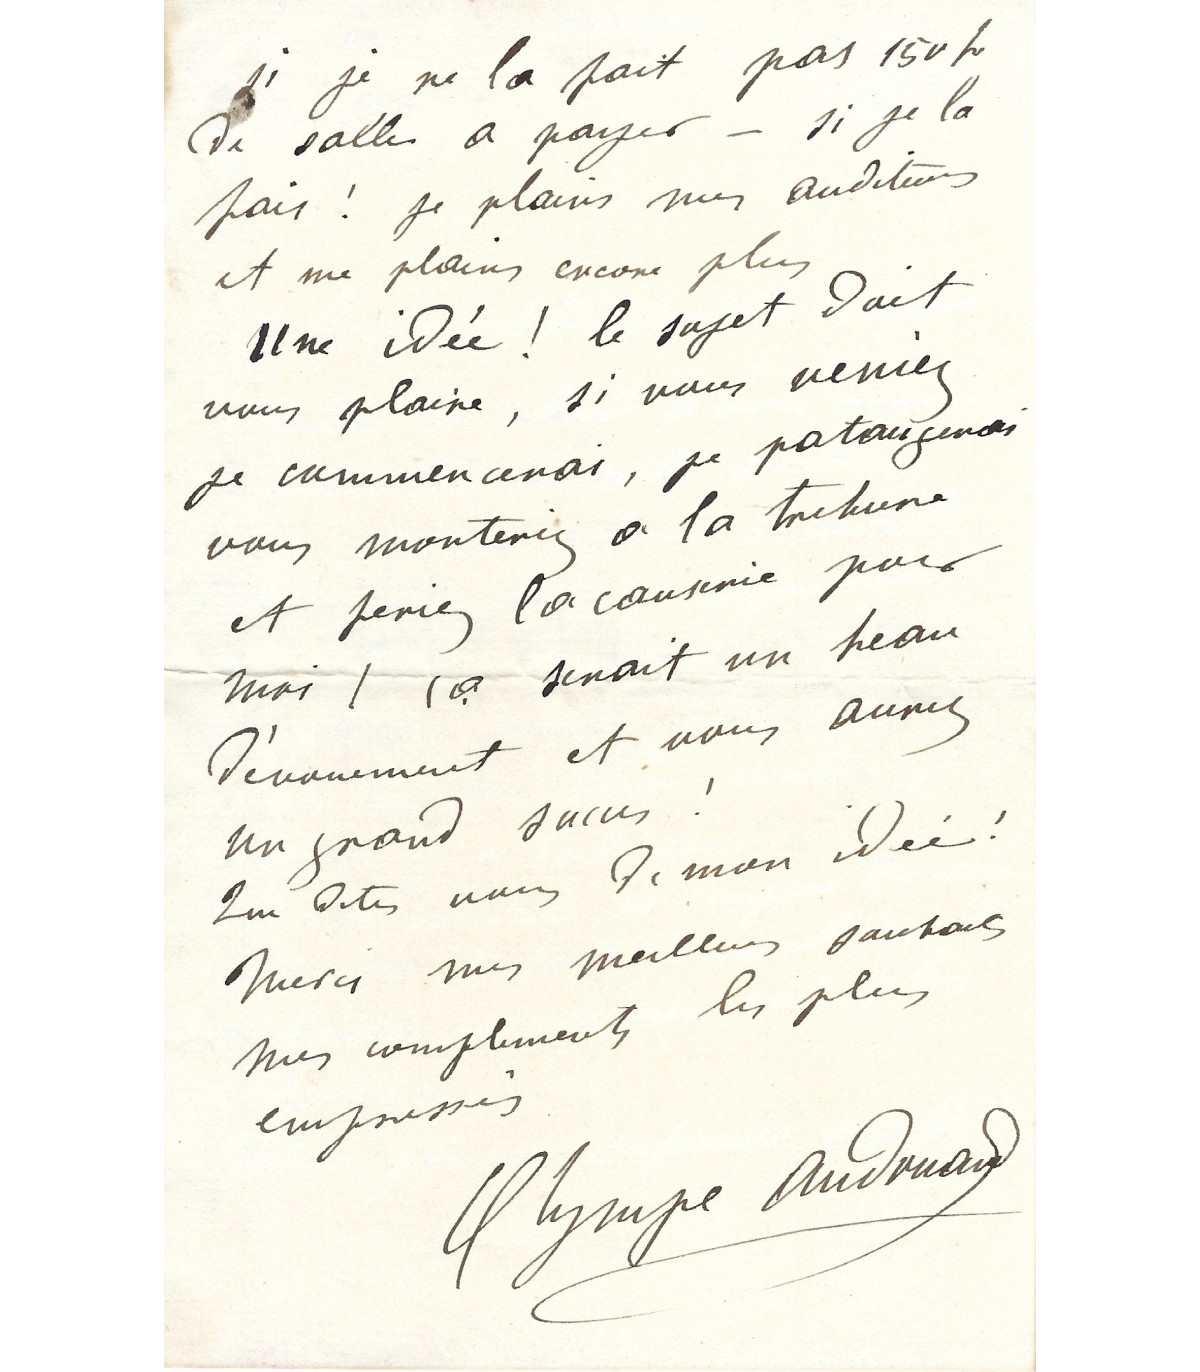 si je ne la fait pas 150 f
de salle a payer – si je la
fais ! je plains mes auditeurs
et me plains encore plus
Une idée ! le sujet doit
vous plaire, si vous veniez
je commencerai, je pataugerai
vous monteriez a la tribune
et feriez la causerie pour
moi ! ça serait un beau
dévouement et vous auriez
un grand succes !
Que dites vous de mon idée !
Merci mes meilleurs souhaits
mes compliments les plus
empressés
Olympe Audouard